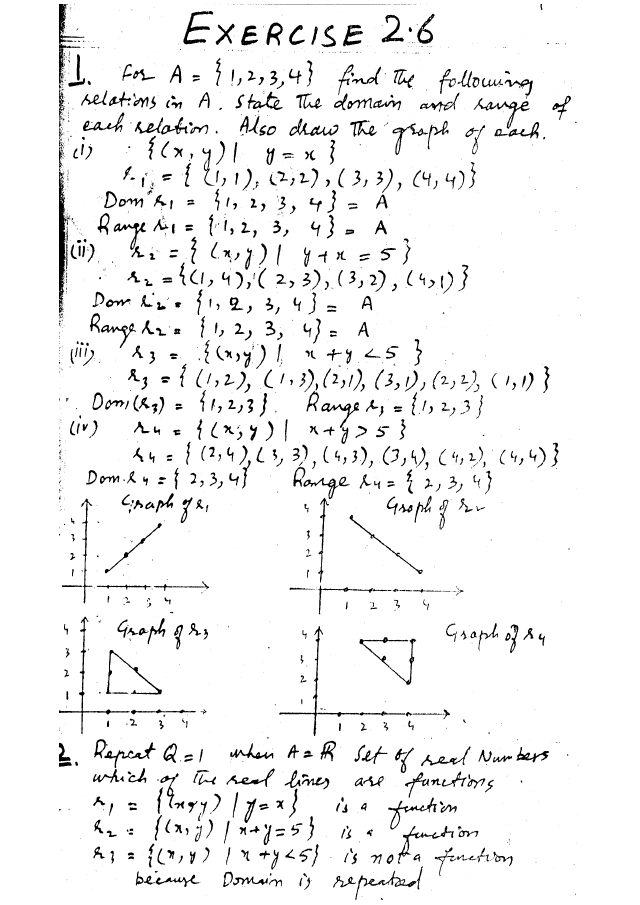 EXERCISE 2.6
1. For A = {1,2,3,4} find the following
relations in A. State the domain and range of
each relation. Also draw the graph of each.
(i) {(x,y) | y = x}
r₁ = {(1,1), (2,2), (3,3), (4,4)}
Dom r₁ = {1, 2, 3, 4} = A
Range r₁ = {1, 2, 3, 4} = A
(ii) r₂ = {(x,y) | y + x = 5}
r₂ = {(1,4), (2,3), (3,2), (4,1)}
Dom r₂ = {1, 2, 3, 4} = A
Range r₂ = {1, 2, 3, 4} = A
(iii) r₃ = {(x,y) | x + y < 5}
r₃ = {(1,2), (1,3), (2,1), (3,1), (2,2), (1,1)}
Dom(r₃) = {1,2,3} Range r₃ = {1,2,3}
(iv) r₄ = {(x,y) | x + y > 5}
r₄ = {(2,4), (3,3), (4,3), (3,4), (4,2), (4,4)}
Dom. r₄ = {2,3,4} Range r₄ = {2,3,4}
Graph of r₁ Graph of r₂
4 3 2 1
1 2 3 4
4 3 2 1
1 2 3 4
Graph of r₃ Graph of r₄
4 3 2 1
1 2 3 4
4 3 2 1
1 2 3 4
2. Repeat Q = 1 when A = ℝ Set of real Numbers
which of the real lines are functions
r₁ = {(x,y) | y = x} is a function
r₂ = {(x,y) | x+y=5} is a function
r₃ = {(x,y) | x+y<5} is not a function
because Domain is repeated